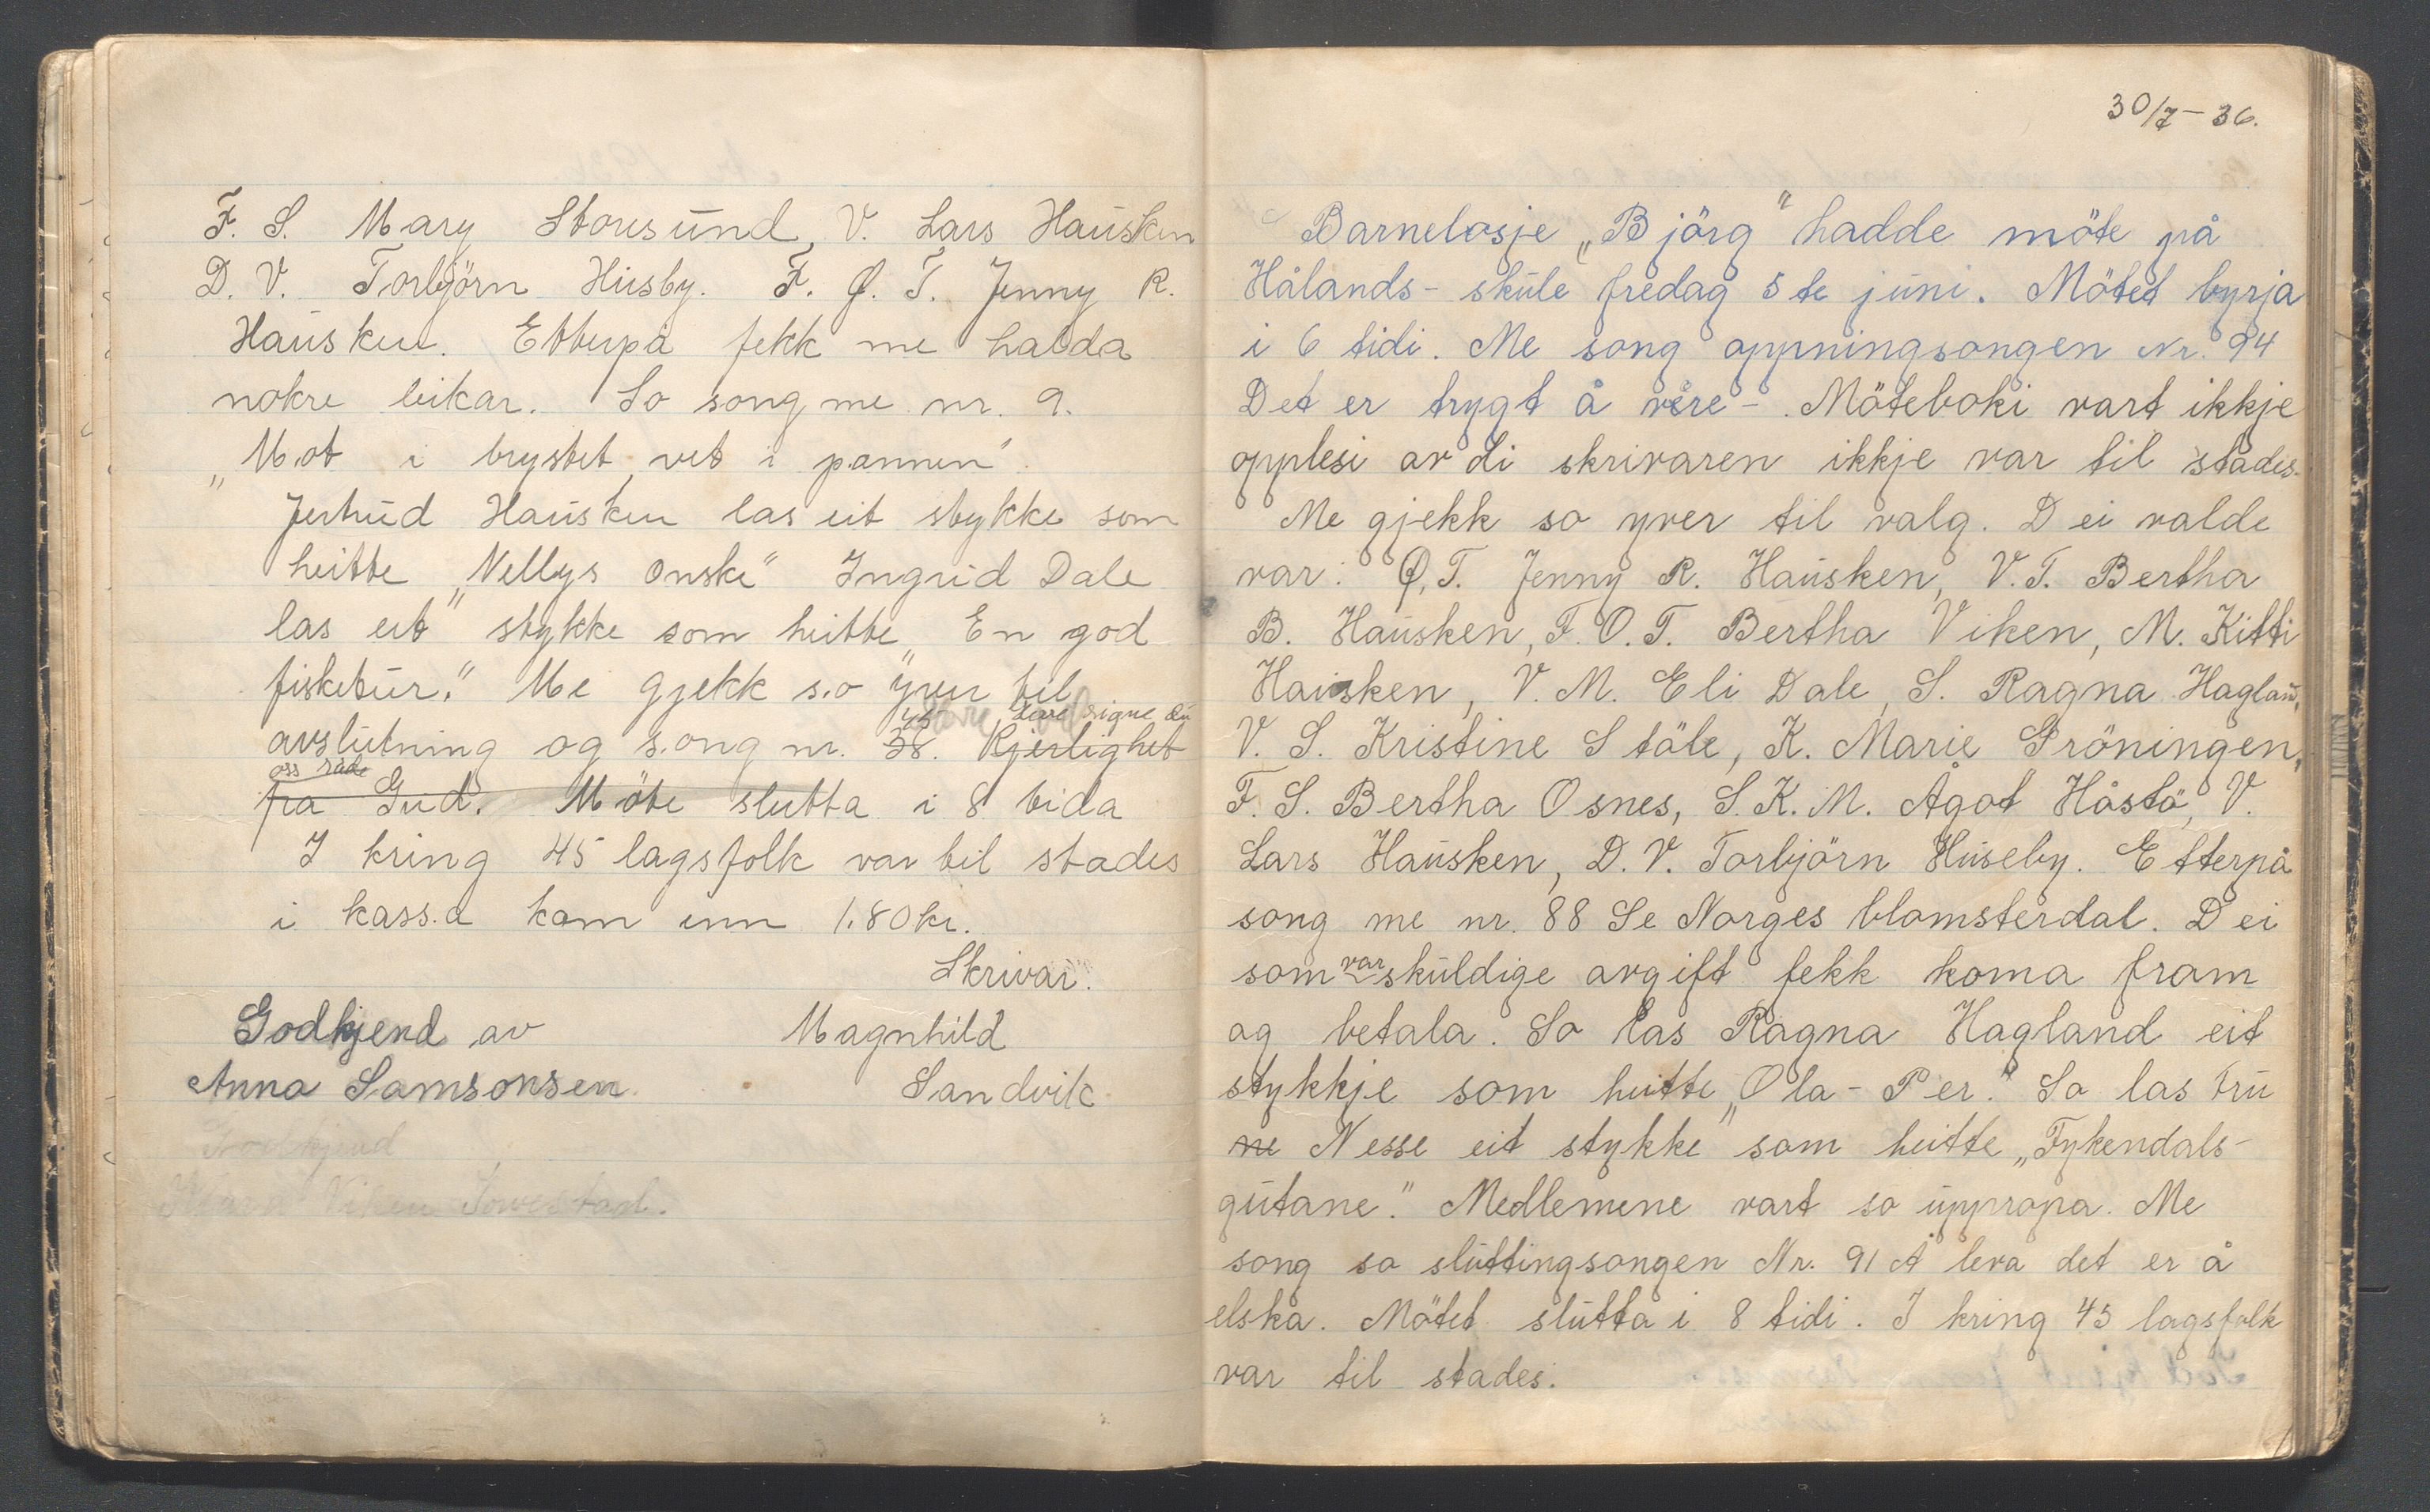 F. S. Mary Storesund, V. Lars Hausken
D. V. Torbjörn Husby. F. Ø. T. Jenny R.
Hausken. Etterpå fekk me halda
nokre leikar. So song me nr. 9.
„Mot i brystet, vet i pannen".
Jertrud Hausken las eit stykke som
heitte „Nellys onske" Ingrid Dale
las eit stykke som heitte „En god
fisketur." Me gjekk so yver til
45 signe du
avslutning og song nr. 38. Kjerlighet
oss råde
fra Gud. Möte slutta i 8 tida
I kring 45 lagsfolk var til stades
i kassa kom inn 1.80 kr.
Skrivar.
Godkjend av Magnhild
Anna Samsonsen. Sandvik
Godkjend
Viken
30/7-36.
Barnelosje „Björg" hadde möte på
Hålands-skule fredag 5te juni. Mötet byrja
i 6 tidi. Me song oppningsongen Nr. 94
Det er trygt å vere-. Möteboki vart ikkje
opplesi av di skrivaren ikkje var til stades.
Me gjekk so yver til valg. Dei valde
var: Ø.T. Jenny R. Hausken, V.T. Bertha
B. Hausken, F.O.T. Bertha Viken, M. Kitti
Hausken, V.M. Eli Dale, S. Ragna Hagland,
V. S. Kristine Stöle, K. Marie Gröningen,
F. S. Bertha Osnes, S.K.M. Ågot Håstö, V.
Lars Hausken, D.V. Torbjörn Huseby. Etterpå
song me nr. 88 Se Norges blomsterdal. Dei
som var skuldige avgift fekk koma fram
og betala. So las Ragna Hagland eit
stykkje som heitte „Ola-Per." So las fru
ne Nesse eit stykke som heitte „Fykendals-
gutane." Medlemene vart so uppropa. Me
song so sluttingsongen Nr. 91 Å leva det er å
elska. Mötet slutta i 8 tidi. I kring 45 lagsfolk
var til stades.